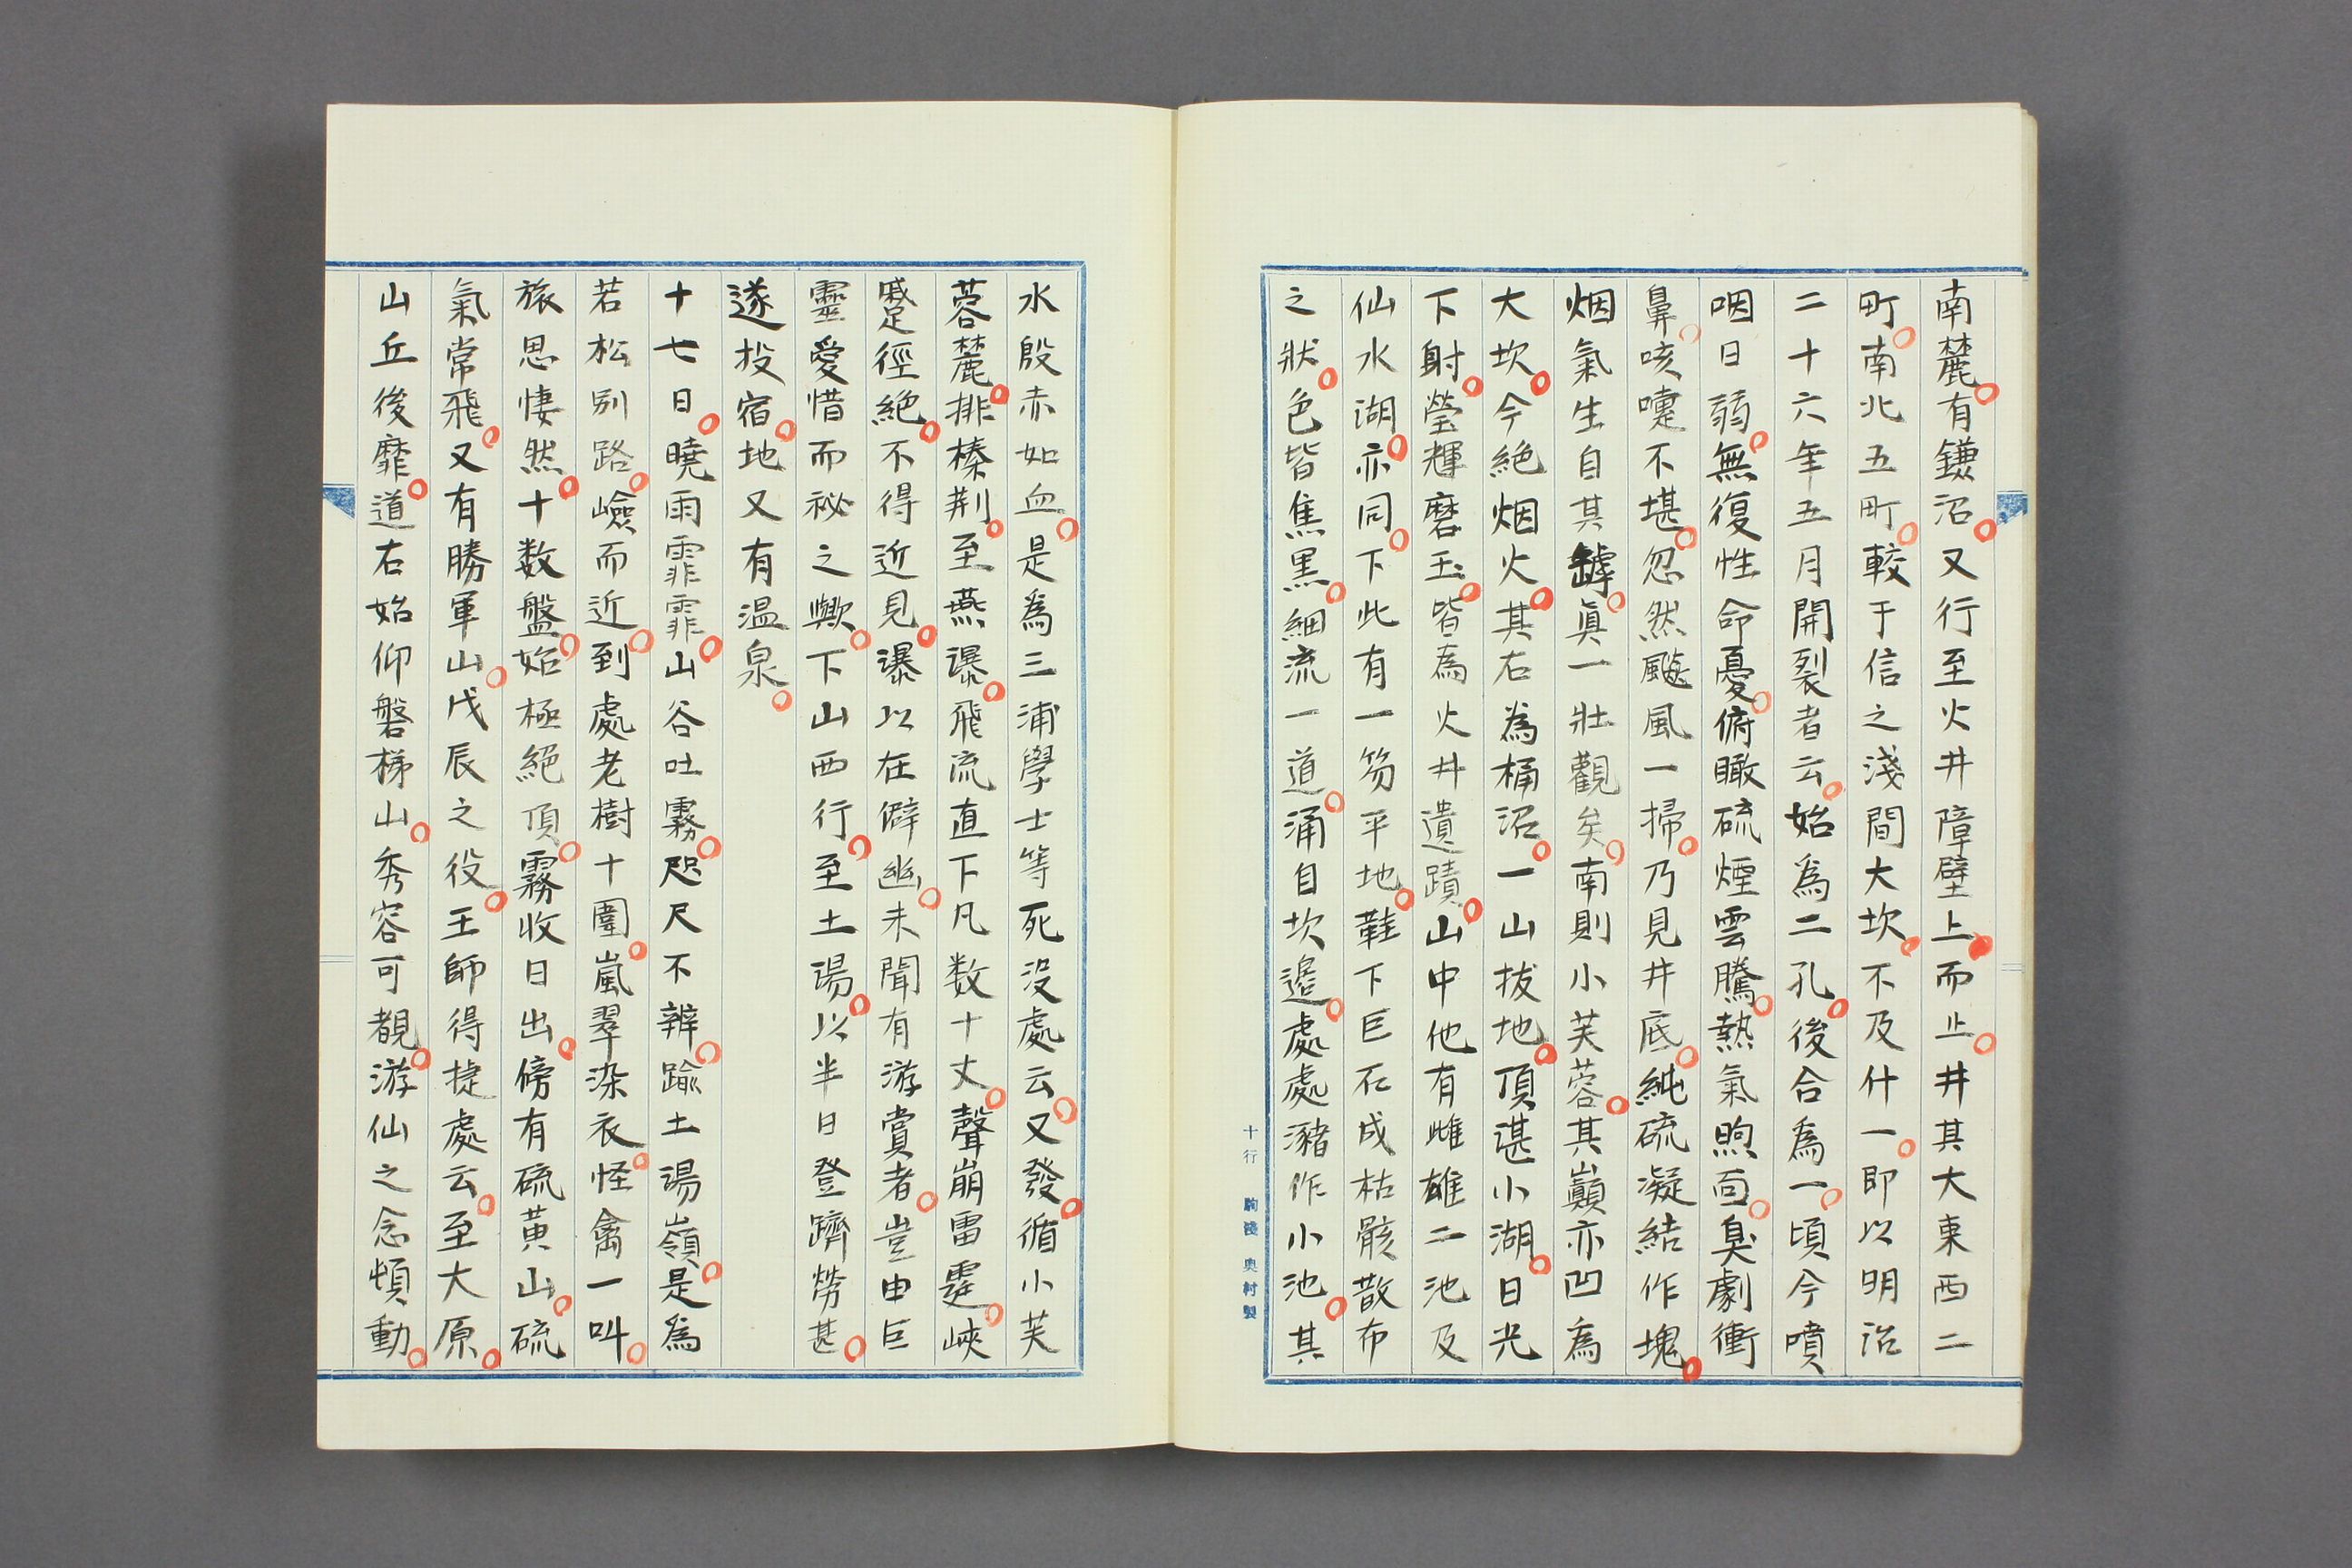 南麓。有鎌沼。又行至火井障壁上。而止。井其大東西二
町。南北五町。較于信之淺間大坎。不及什一。即以明治
二十六年五月開裂者云。始為二孔。後合為一。頃今噴
烟日弱。無復性命憂。俯瞰硫煙雲騰。熱氣煦面。臭劇衝
鼻。咳嚏不堪。忽然颾風一掃。乃見井底。純硫凝結作塊。
烟氣生自其罅。真一壯觀矣。南則小芙蓉。其巓亦凹為
大坎。今絶烟火。其右為桶沼。一山拔地。頂湛小湖。日光
下射。瑩輝磨玉。皆為火井遺蹟。山中他有雌雄二池及
仙水湖。亦同。下此有一笏平地。鞋下巨石成枯骸散布
之狀。色皆焦黒。細流一道。涌自坎邉。處處瀦作小池。其
十行 奥村製
水殷赤如血。是為三浦學士等死没處云。又發。循小芙
蓉麓。排榛荆。至燕瀑。飛流直下凡数十丈。聲崩雷霆。峽
蹙徑絶。不得近見。瀑以在僻幽。未聞有游賞者。豈由巨
靈愛惜而祕之歟。下山西行。至土湯。以半日登躋勞甚。
遂投宿。地又有温泉。
十七日。曉雨霏霏。山谷吐霧。咫尺不辨。踰土湯嶺。是為
若松別路。嶮而近。到處老樹十圍。嵐翠染衣。怪禽一叫。
旅思悽然。十数盤。始極絕頂。霧收日出。傍有硫黄山。硫
氣常飛。又有勝軍山。戊辰之役。王師得捷處云。至大原。
山丘後靡。道右始仰磐梯山。秀容可覩。游仙之念頓動。